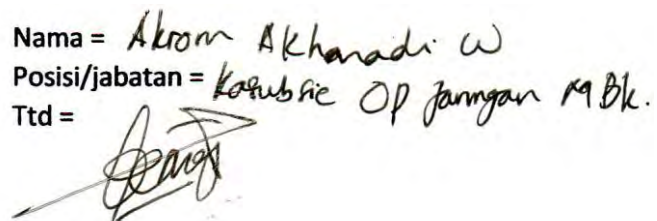 Nama = Akrom Akhmadi W
Posisi/jabatan = Kasubsie OP Jaringan
Ttd =